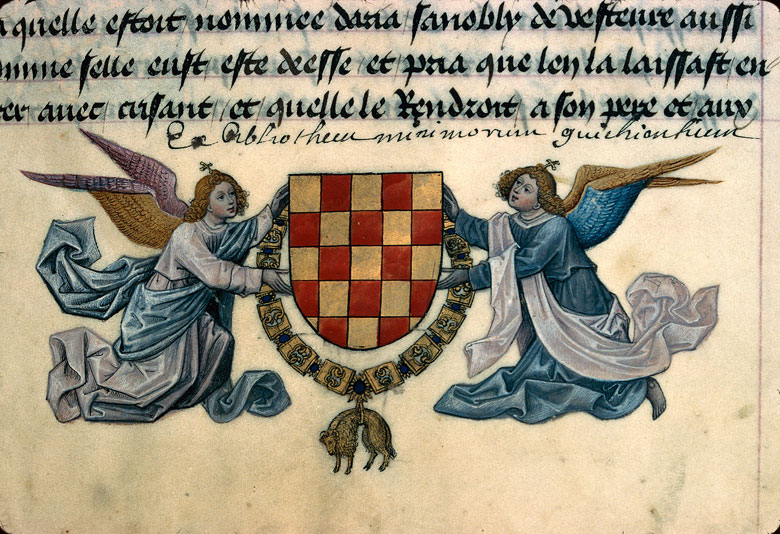 a quelle estoit nommee daria sanobly de vesteure aussi
mme selle eust este deesse et pria que len la laissast en
rer avec crisant et quelle le Rendroit a son pere et aux
Ex Bibliotheca minimorum guichiensium